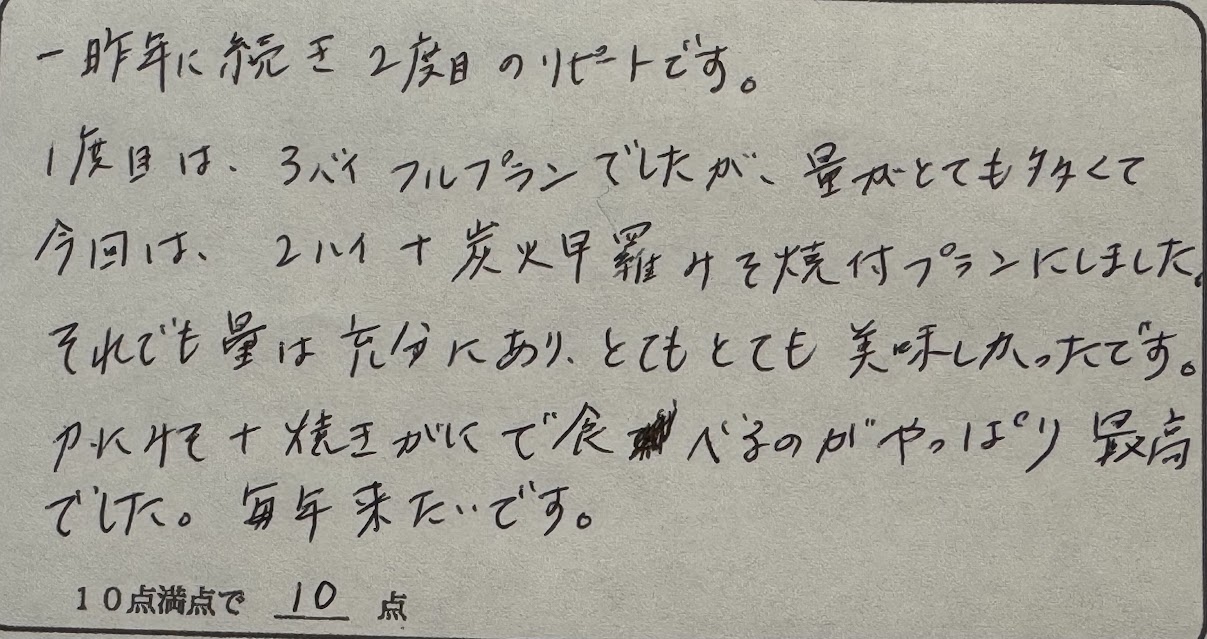 一昨年に続き2度目のリピートです。
1度目は、3バイフルプランでしたが、量がとても多くて
今回は、2ハイ+炭火甲羅みそ焼付プランにしました。
それでも量は充分にあり、とてもとても美味しかったです。
かにみそ+焼きがにで食べるのがやっぱり最高
でした。毎年来たいです。
10点満点で 10 点